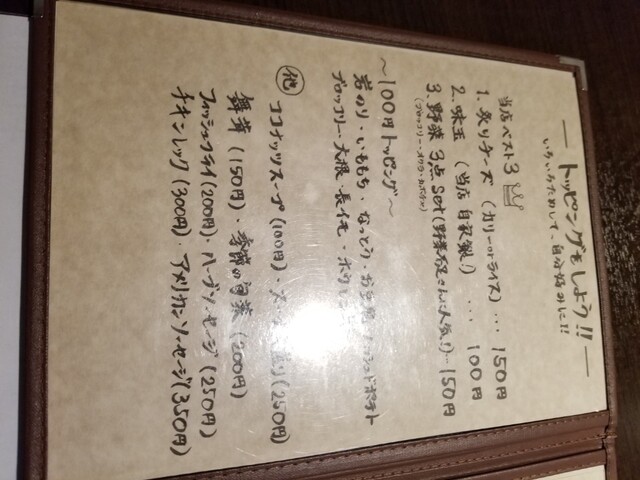 ― トッピングをしよう!! ―
いろいろためして、自分好みに!!
当店ベスト3
1. 炙りチーズ (カリーorライス) ... 150円
2. 味玉 (当店自家製!) ... 100円
3. 野菜3点Set(野菜不足さんに人気!)... 150円
(ブロッコリー・オクラ・カボチャ)
〜100円トッピング〜
岩のり・いももち・なっとう・
ブロッコリー・大根・長イモ・
他 ココナッツスープ(100円)・ (250円)
舞茸 (150円)・季節の旬菜 (200円)
フィッシュフライ(200円)・ハーブソーセージ(250円)
チキンレッグ(300円)・アメリカンソーセージ(350円)